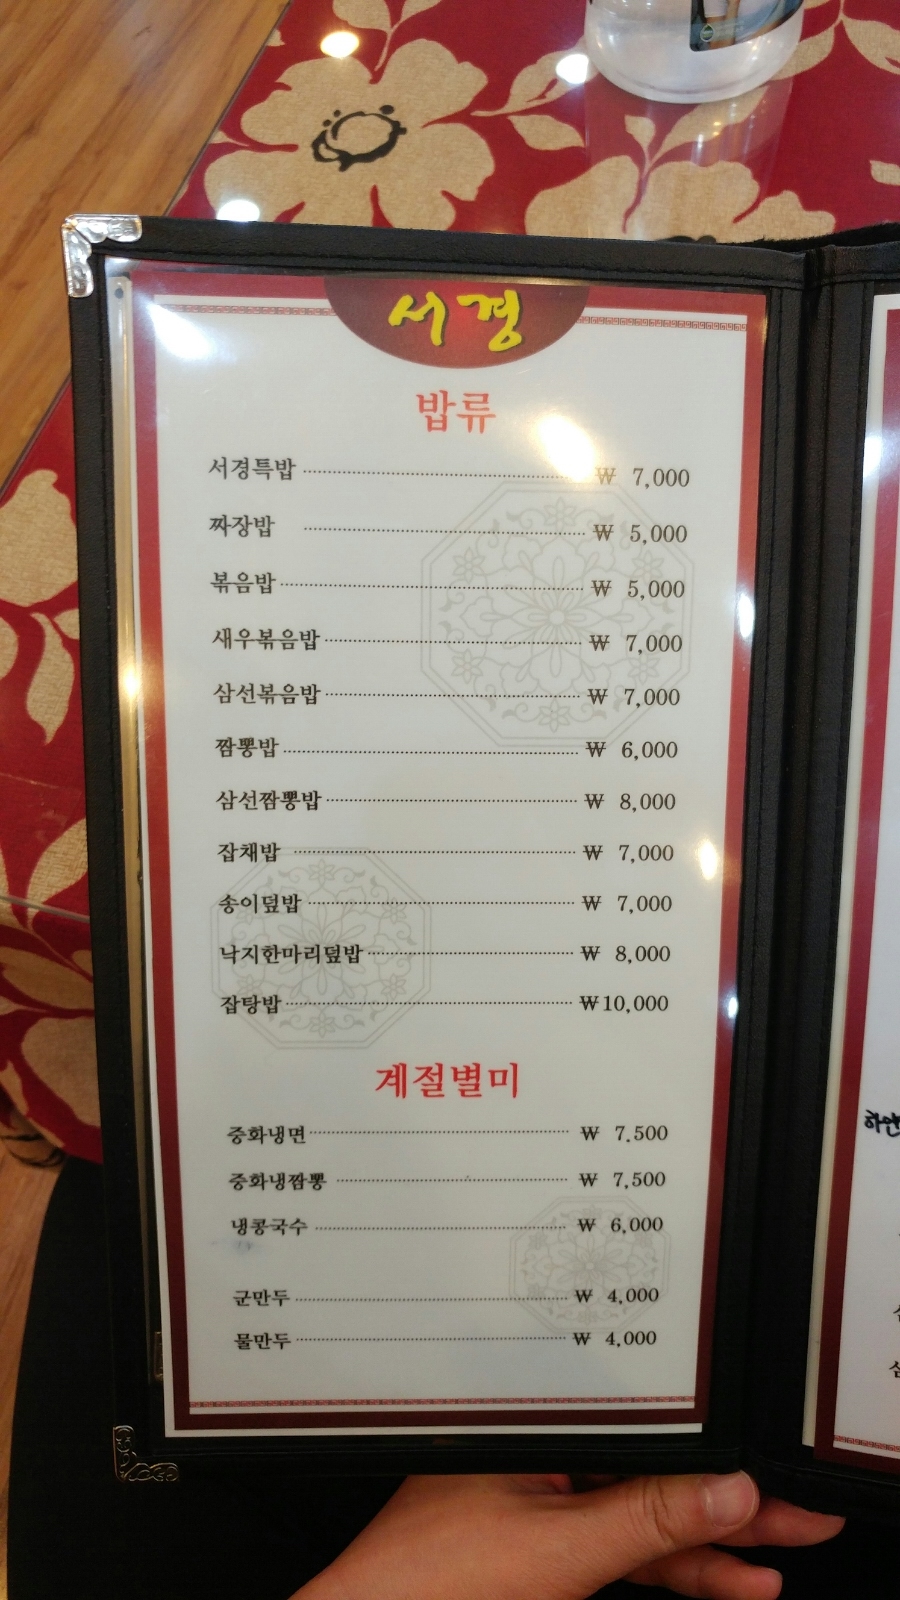 서경
밥류
서경특밥 ₩ 7,000
짜장밥 ₩ 5,000
볶음밥 ₩ 5,000
새우볶음밥 ₩ 7,000
삼선볶음밥 ₩ 7,000
짬뽕밥 ₩ 6,000
삼선짬뽕밥 ₩ 8,000
잡채밥 ₩ 7,000
송이덮밥 ₩ 7,000
낙지한마리덮밥 ₩ 8,000
잡탕밥 ₩10,000
계절별미
중화냉면 ₩ 7,500
중화냉짬뽕 ₩ 7,500
냉콩국수 ₩ 6,000
군만두 ₩ 4,000
물만두 ₩ 4,000